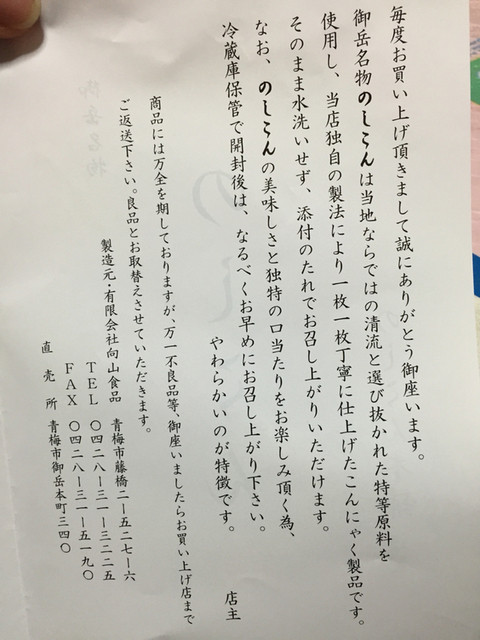 毎度お買い上げ頂きまして誠にありがとう御座います。
御岳名物のしこんは当地ならではの清流と選び抜かれた特等原料を
使用し、当店独自の製法により一枚一枚丁寧に仕上げたこんにゃく製品です。
そのまま水洗いせず、添付のたれでお召し上がりいただけます。
なお、のしこんの美味しさと独特の口当たりをお楽しみ頂く為、
冷蔵庫保管で開封後は、なるべくお早めにお召し上がり下さい。
やわらかいのが特徴です。
店主
商品には万全を期しておりますが、万一不良品等、御座いましたらお買い上げ店まで
ご返送下さい。良品とお取替えさせていただきます。
製造元・有限会社向山食品 青梅市藤橋二ー五二七ー六
TEL 〇四二八ー三一ー三二二五
FAX 〇四二八ー三一ー五一九〇
直売所 青梅市御岳本町三四〇
御岳名物